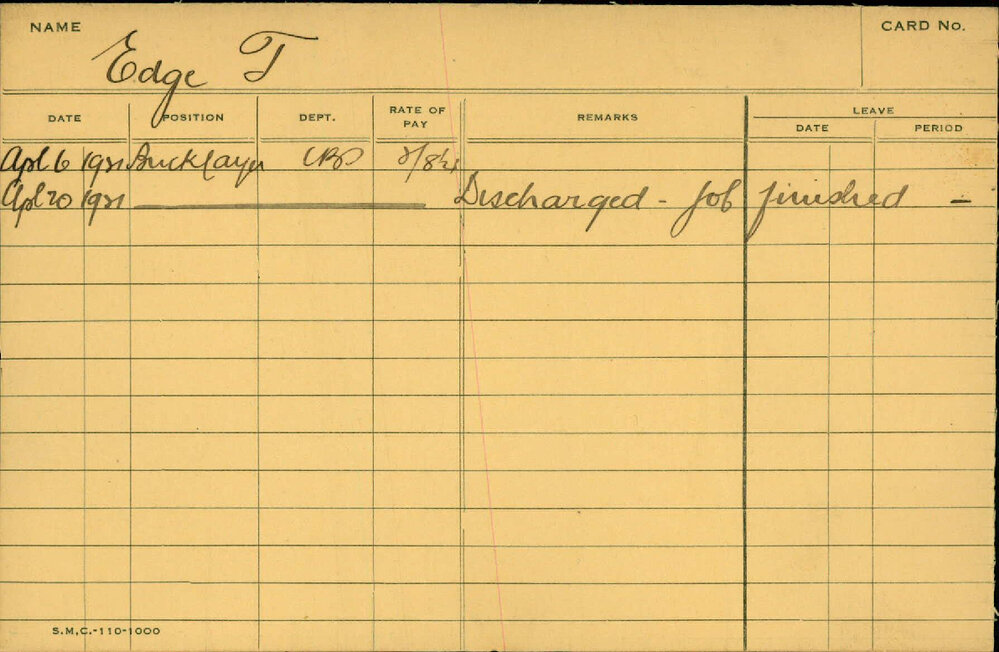 NAME Edge T CARD No.
DATE POSITION DEPT. RATE OF PAY REMARKS LEAVE
DATE PERIOD
Apl 6 1921 Bricklayer
Apl 20 1921 Discharged - Job finished -
S.M.C.-110-1000